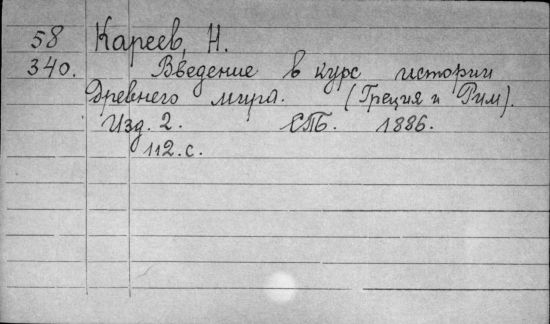 58 Кареев, Н.
340. Введение в курс истории
Древнего мира. (Греция и Рим).
Изд. 2. СПБ. 1886.
112. с.